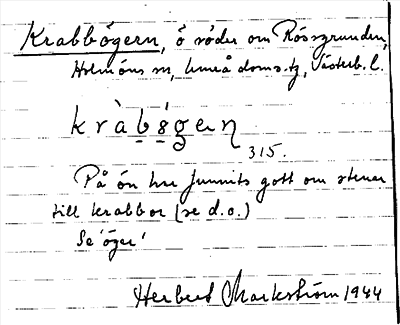 Krabbögern, ö söder om Rössgrunden,
Holmöns sn, Umeå doms.tg, Västerb. l.
kràbǿgeṇ
315.
På ön har funnits gott om stenar
till krabbor (se d.o.)
Se 'öger'
Herbert Markström 1944